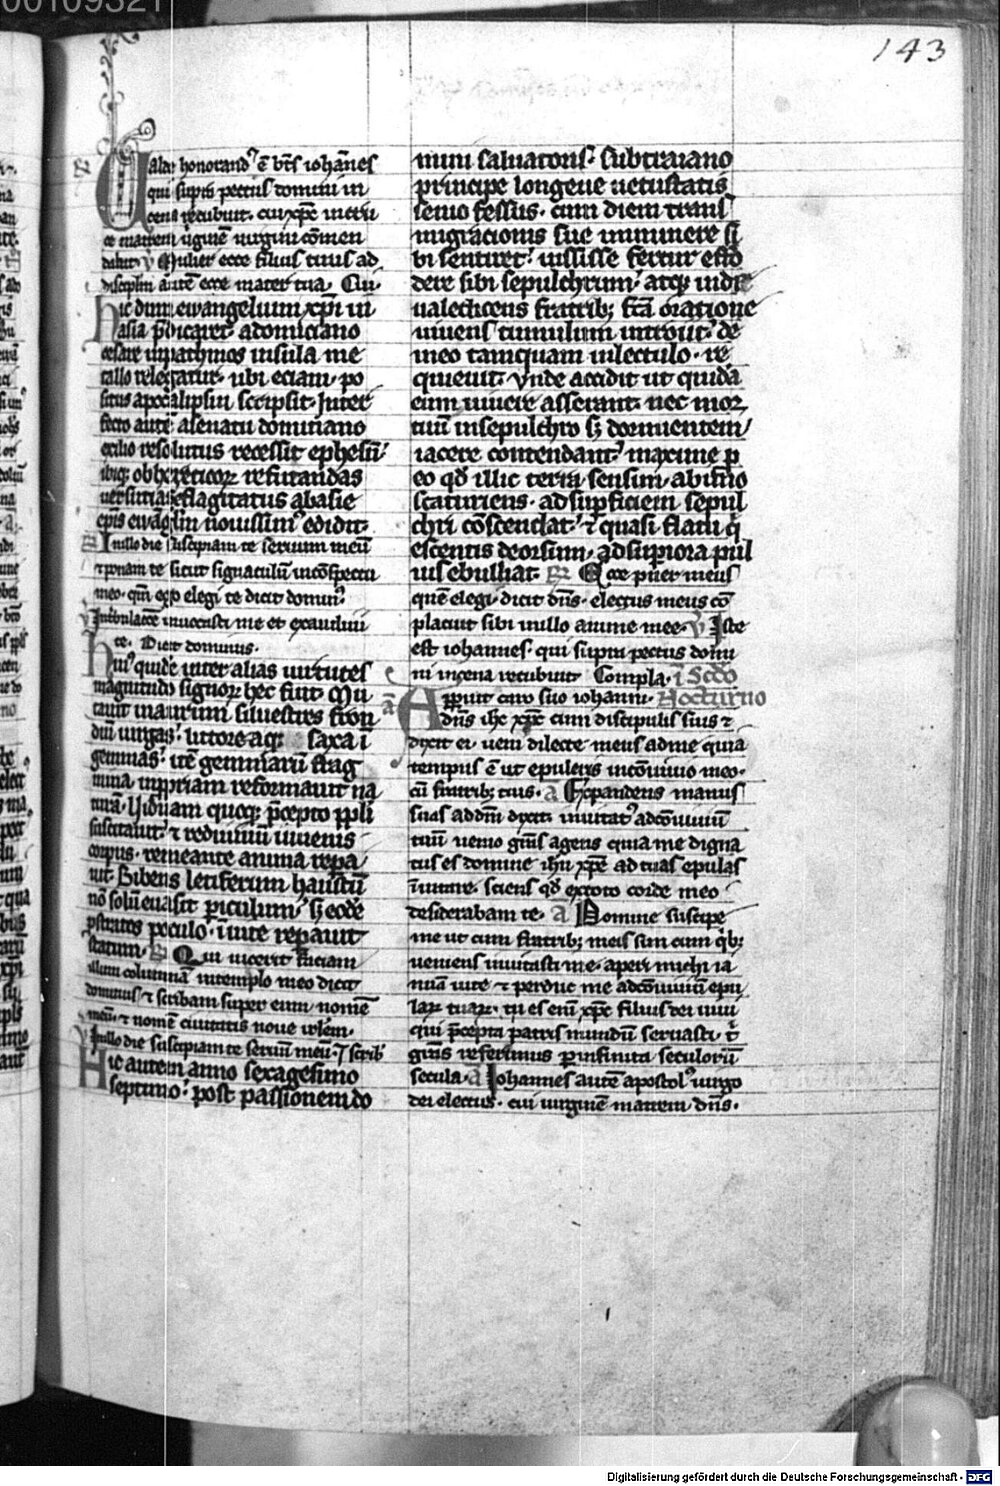 00109321
143
Valde honorand⁹ ē btˢ iohānes
qui supra pectus domini in
cena recubuit. cui xpc in cru
ce matrem v̄ginē virgini cōmen
dauit. V Mulier ecce filius tuus ad
discipl̄m autē ecce mater tua. Cui.
hic dum ewangelium xp̄i in
asia p̄dicaret. a domiciano
cesare in pathmos insula me
tallo relegatur. ubi eciam po
situs apocalipsin scripsit. Inter
fecto autē a senatu domiciano
exilio resolutus recessit ephesū.
ibiq; ob hereticoꝝ refutandas
uersutias efflagitatus ab asie
ep̄is ewāgl̄m nouissim⁹ edidit.
R In illo die suscipiam te seruum meū
⁊ ponam te sicut signaculū in cōspectu
meo. qm̄ ego elegi te dicit domin⁹.
V In tribulacōe inuocasti me et exaudiui
te. Dicit dominus.
hui⁹ quidē inter alias uirtutes
magnitudo signoꝝ hec fuit. Mu
tauit in aurum siluestres fron
diū uirgas. littoreaq; saxa ī
gemmas. itē gemmarū frag
mina in ꝓpriam reformauit na
turā. Viduam quoq; p̄cepto ppl̄i
suscitauit. ⁊ rediuiuū iuuenis
corpus. remeante anima repa
uit. Bibens letiferum haustū
nō solū euasit periculum. sꝫ eodē
pstratos poculo. in uite repauit
statum. R Qui uicerit faciam
illum columnā in templo meo dicit
dominus ⁊ scribam super eum nomē
meū. ⁊ nomē ciuitatis noue irl̄em.
V In illo die suscipiam te seruū meū. ⁊ scrib̄
Hic autem anno sexagesimo
septimo. post passionem do
mini saluatoris. sub traiano
principe longeue uetustatis
senio fessus. cum diem trans
migracionis sue imminere si
bi sentiret. iussisse fertur effo
dere sibi sepulchrum. atq; inde
ualedicens fratribꝫ fc̄a oratione
uiuens tumulum introiit. de
meo tamquam in lectulo. re
quieuit. Vnde accidit ut quidā
eum uiuere asserant. nec mor
tuū in sepulchro sꝫ dormientem
iacere contendant. maxime p
eo qd̄ illic terra sensim ab imo
scaturiens. ad supficiem sepul
chri cōscendat. ⁊ quasi flatu q̄
escentis deorsum. ad supiora pul
uis ebulliat. R Ecce puer meus
quē elegi. dicit dn̄s. electus meus cō
placuit sibi in illo anime mee. V Iste
est iohannes. qui supra pectus domi
ni in cena recubuit. Compla. ī Scd̄o
Nocturno
ā Apparuit caro suo iohanni.
dn̄s ihc xpc cum discipulis suis ⁊
dixit ei. ueni dilecte meus ad me quia
tempus ē ut epuleris in cōuiuio meo.
cū fratribꝫ tuis. ā Expandens manus
suas ad dn̄m dixit. inuitat⁹ ad cōuiuiū
tuū uenio grās agens quia me digna
tus es domine ihu xpe ad tuas epulas
īuitare. sciens qd̄ ex toto corde meo
desiderabam te. ā Domine suscipe
me ut cum fratribꝫ meis sim cum q̄bꝫ
ueniens inuitasti me. aperi michi ia
nuā uite ⁊ perduc me ad cōuiuiū epu
laꝝ tuaꝝ. tu es enī xpc filius dei uiui
qui p̄cepta patris mundū seruasti. t̄
grās referimus p̄ infinita seculorū
secula. ā Iohannes autē apostol⁹ uirgo
dei electus. cui uirginē matrem dn̄s.
Digitalisierung gefördert durch die Deutsche Forschungsgemeinschaft - DFG